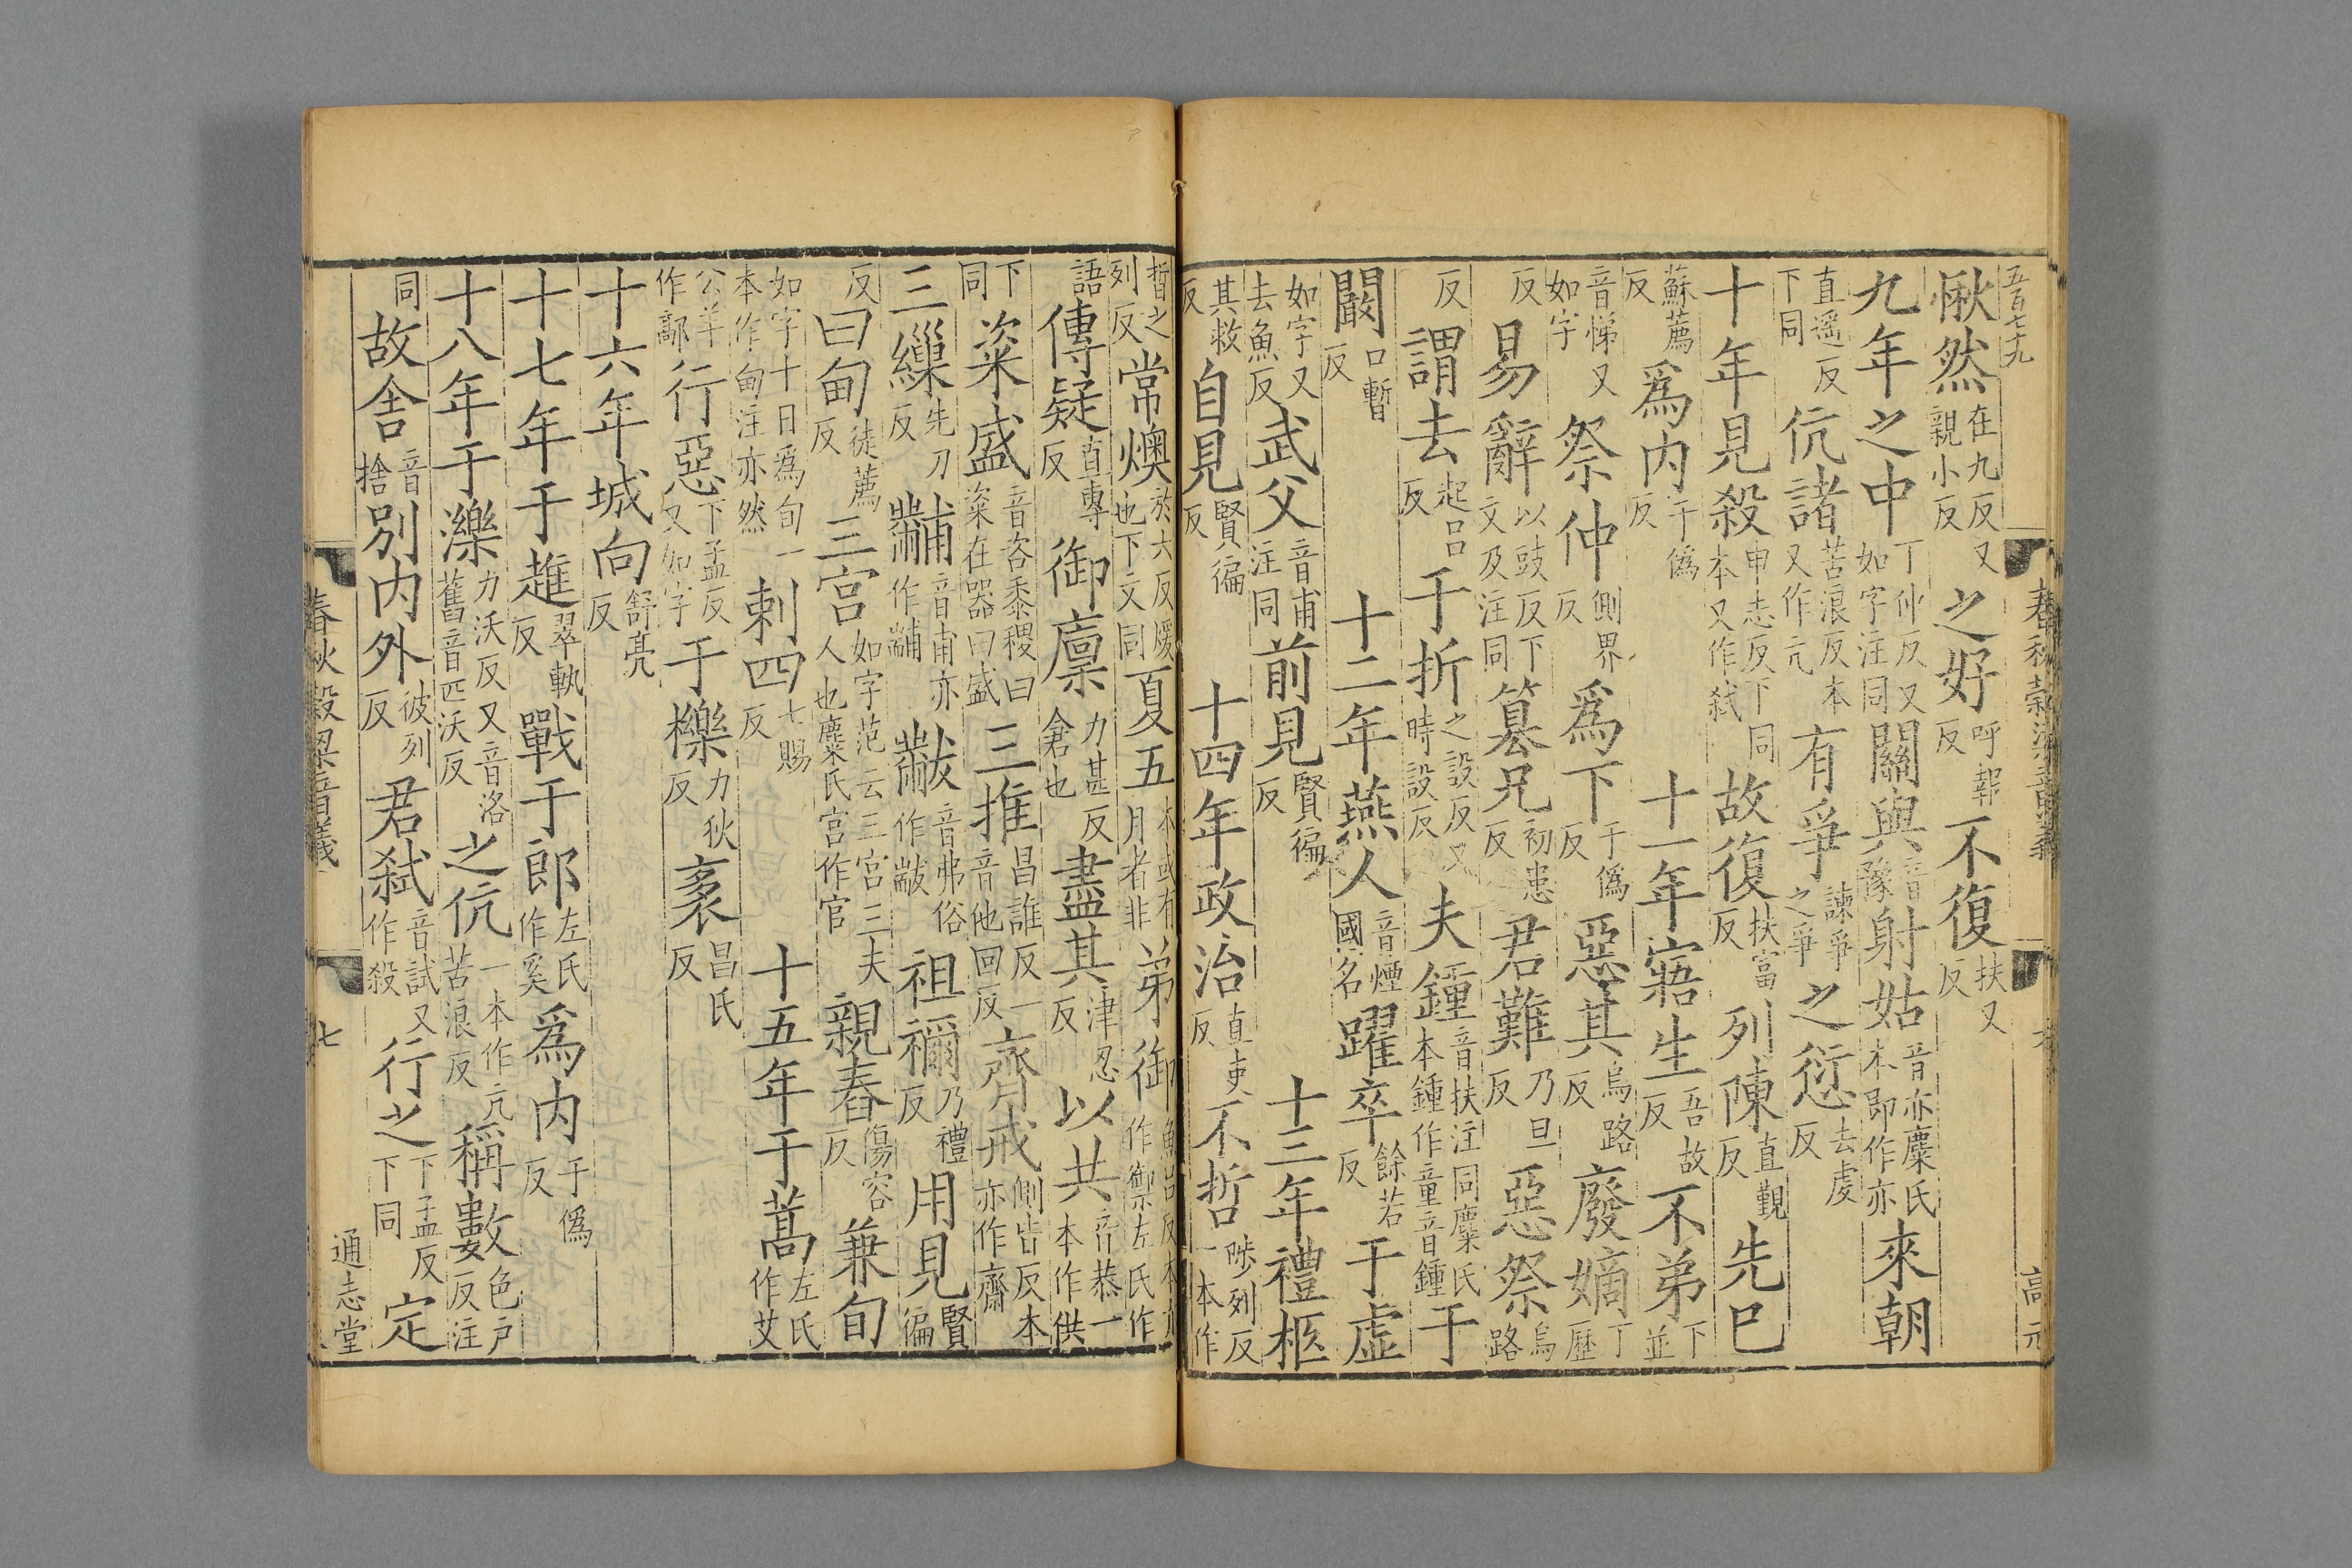 五百七十九
愀然在九反又親小反之好呼報反不復扶又反
九年之中丁仲反又如字注同關與音豫射姑音亦麋氏本即作亦來朝
直遥反下同伉諸苦浪反本又作亢有爭諫爭之爭之愆去虔反
十年見殺申志反下同本又作弑故復扶富反列陳直覲反先巳
蘇薦反爲内于僞反 十一年寤生吾故反不弟下並
音悌又如字祭仲側界反爲下于僞反惡其烏路反廢嫡丁歷
反易辭以豉反下文及注同篡兄初患反君難乃旦反惡祭烏路
反謂去起呂反于折之設反又時設反夫鍾音扶注同麋氏本鍾作童音鍾于
闞口暫反 十二年燕人音煙國名躍卒餘若反于虚
如字又去魚反武父音甫注同前見賢徧反 十三年禮柩
其救反自見賢徧反 十四年政治直吏反不哲陟列反一本作
晢之列反常燠於六反煖也下文同夏五本或有月者非弟御魚呂反本亦作禦左氏作
語傳疑直專反御廩力甚反倉也盡其津忍反以共音恭一本作供
下同粢盛音咨黍稷曰粢在器曰盛三推昌誰反一音他回反齊戒側皆反本亦作齋
三繅先刀反黼音甫亦作黼黻音弗俗作黻祖禰乃禮反用見賢徧
反曰甸徒薦反三宮如字范云三宮三夫人也麋氏宮作官親舂傷容反兼旬
如字十日爲旬一本作甸注亦然刺四七賜反 十五年于蒿左氏作艾
公羊作鄗行惡下孟反又如字于櫟力狄反袲昌氏反
十六年城向舒亮反
十七年于趡翠軌反戰于郎左氏作奚爲内于僞反
十八年于濼力沃反又音洛舊音匹沃反之伉一本作亢苦浪反稱數色户反注
同故舍音捨别内外彼列反君弑音試又作殺行之下孟反下同定
春秋穀梁音義 七 通志堂
高元